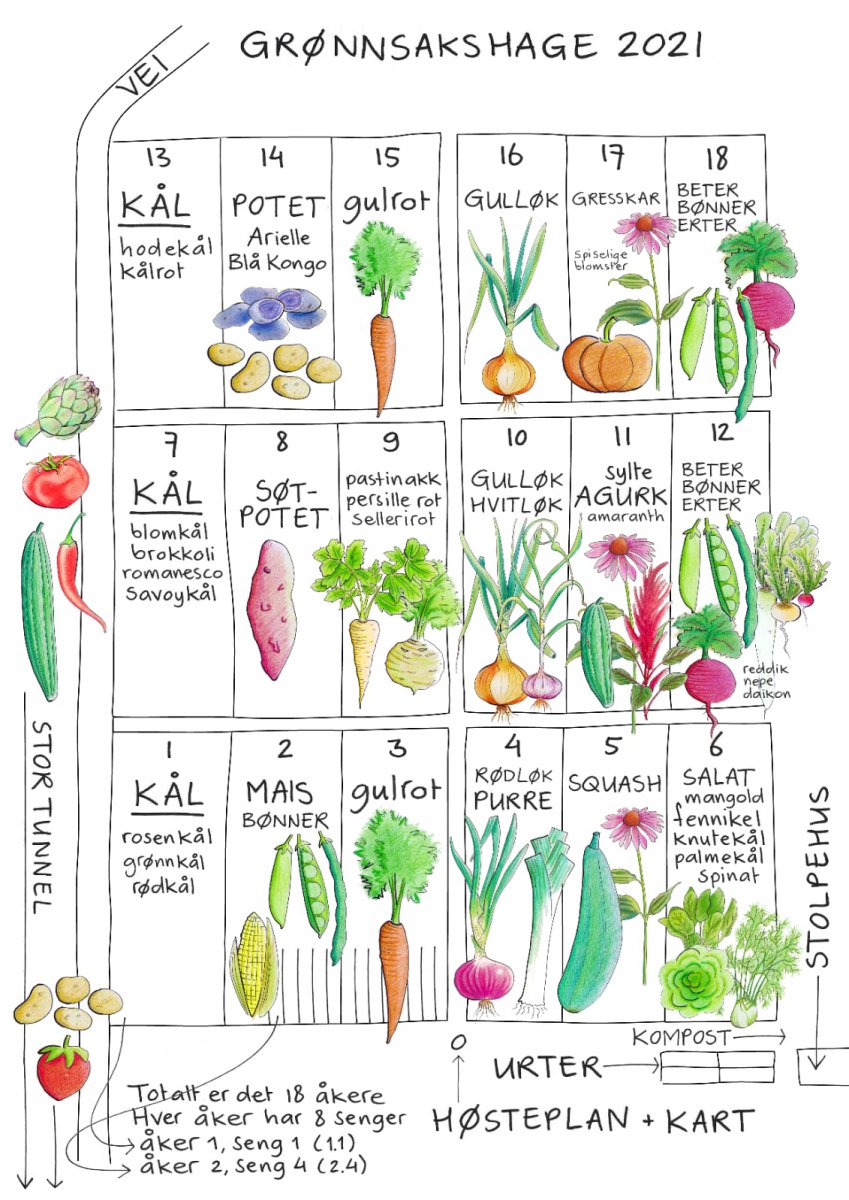 GRØNNSAKSHAGE 2021
VEI
13
KÅL
hodekål
kålrot
14
POTET
Arielle
Blå Kongo
15
gulrot
16
GULLØK
17
GRESSKAR
Spiselige
blomster
18
BETER
BØNNER
ERTER
7
KÅL
blomkål
brokkoli
romanesco
savoykål
8
SØT-
POTET
9
pastinakk
persille rot
sellerirot
10
GULLØK
HVITLØK
11
sylte
AGURK
amaranth
12
BETER
BØNNER
ERTER
reddik
nepe
daikon
1
KÅL
rosenkål
grønnkål
rødkål
2
MAIS
BØNNER
3
gulrot
4
RØDLØK
PURRE
5
SQUASH
6
SALAT
mangold
fennikel
knutekål
palmekål
spinat
STOR TUNNEL
STOLPEHUS
KOMPOST
URTER
HØSTEPLAN + KART
Totalt er det 18 åkere
Hver åker har 8 senger
åker 1, seng 1 (1.1)
åker 2, seng 4 (2.4)